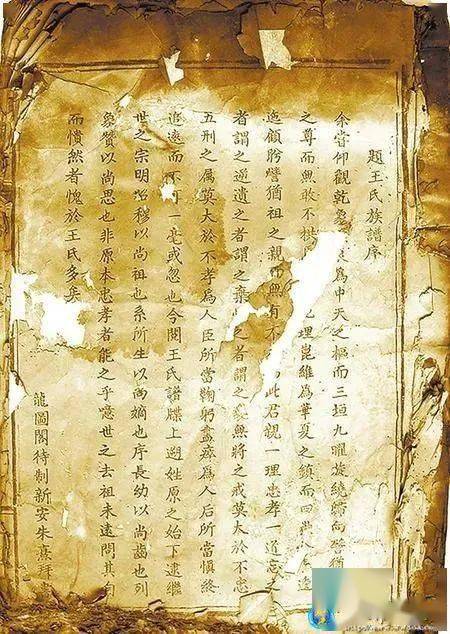 題王氏族譜序
余嘗仰觀乾象辰為中天之樞而三垣九曜旋繞歸向譬猶
之尊而無敢不拱理崑維為華夏之鎮而四逶
迤顧盼譬猶祖之親而無有不此君親一理忠孝一道忘之
者謂之逆遺之者謂之棄之者謂之無將之戒莫大於不忠
五刑之属莫大於不孝為人臣所當鞠躬盡瘁為人后所當慎終
追遠而不一毫或忽也今閱王氏譜牒上遡姓原之始下逮繼
世之宗明昭穆以尚祖也系所生以尚嫡也序長幼以尚齒也列
象贊以尚思也非原本忠孝者能之乎噫世之去祖未遠問其
而憒然者愧於王氏多矣
龍圖閣待制新安朱熹拜